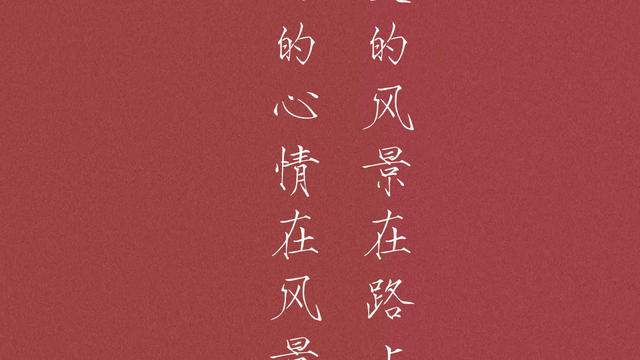 的风景在路上
的心情在风景